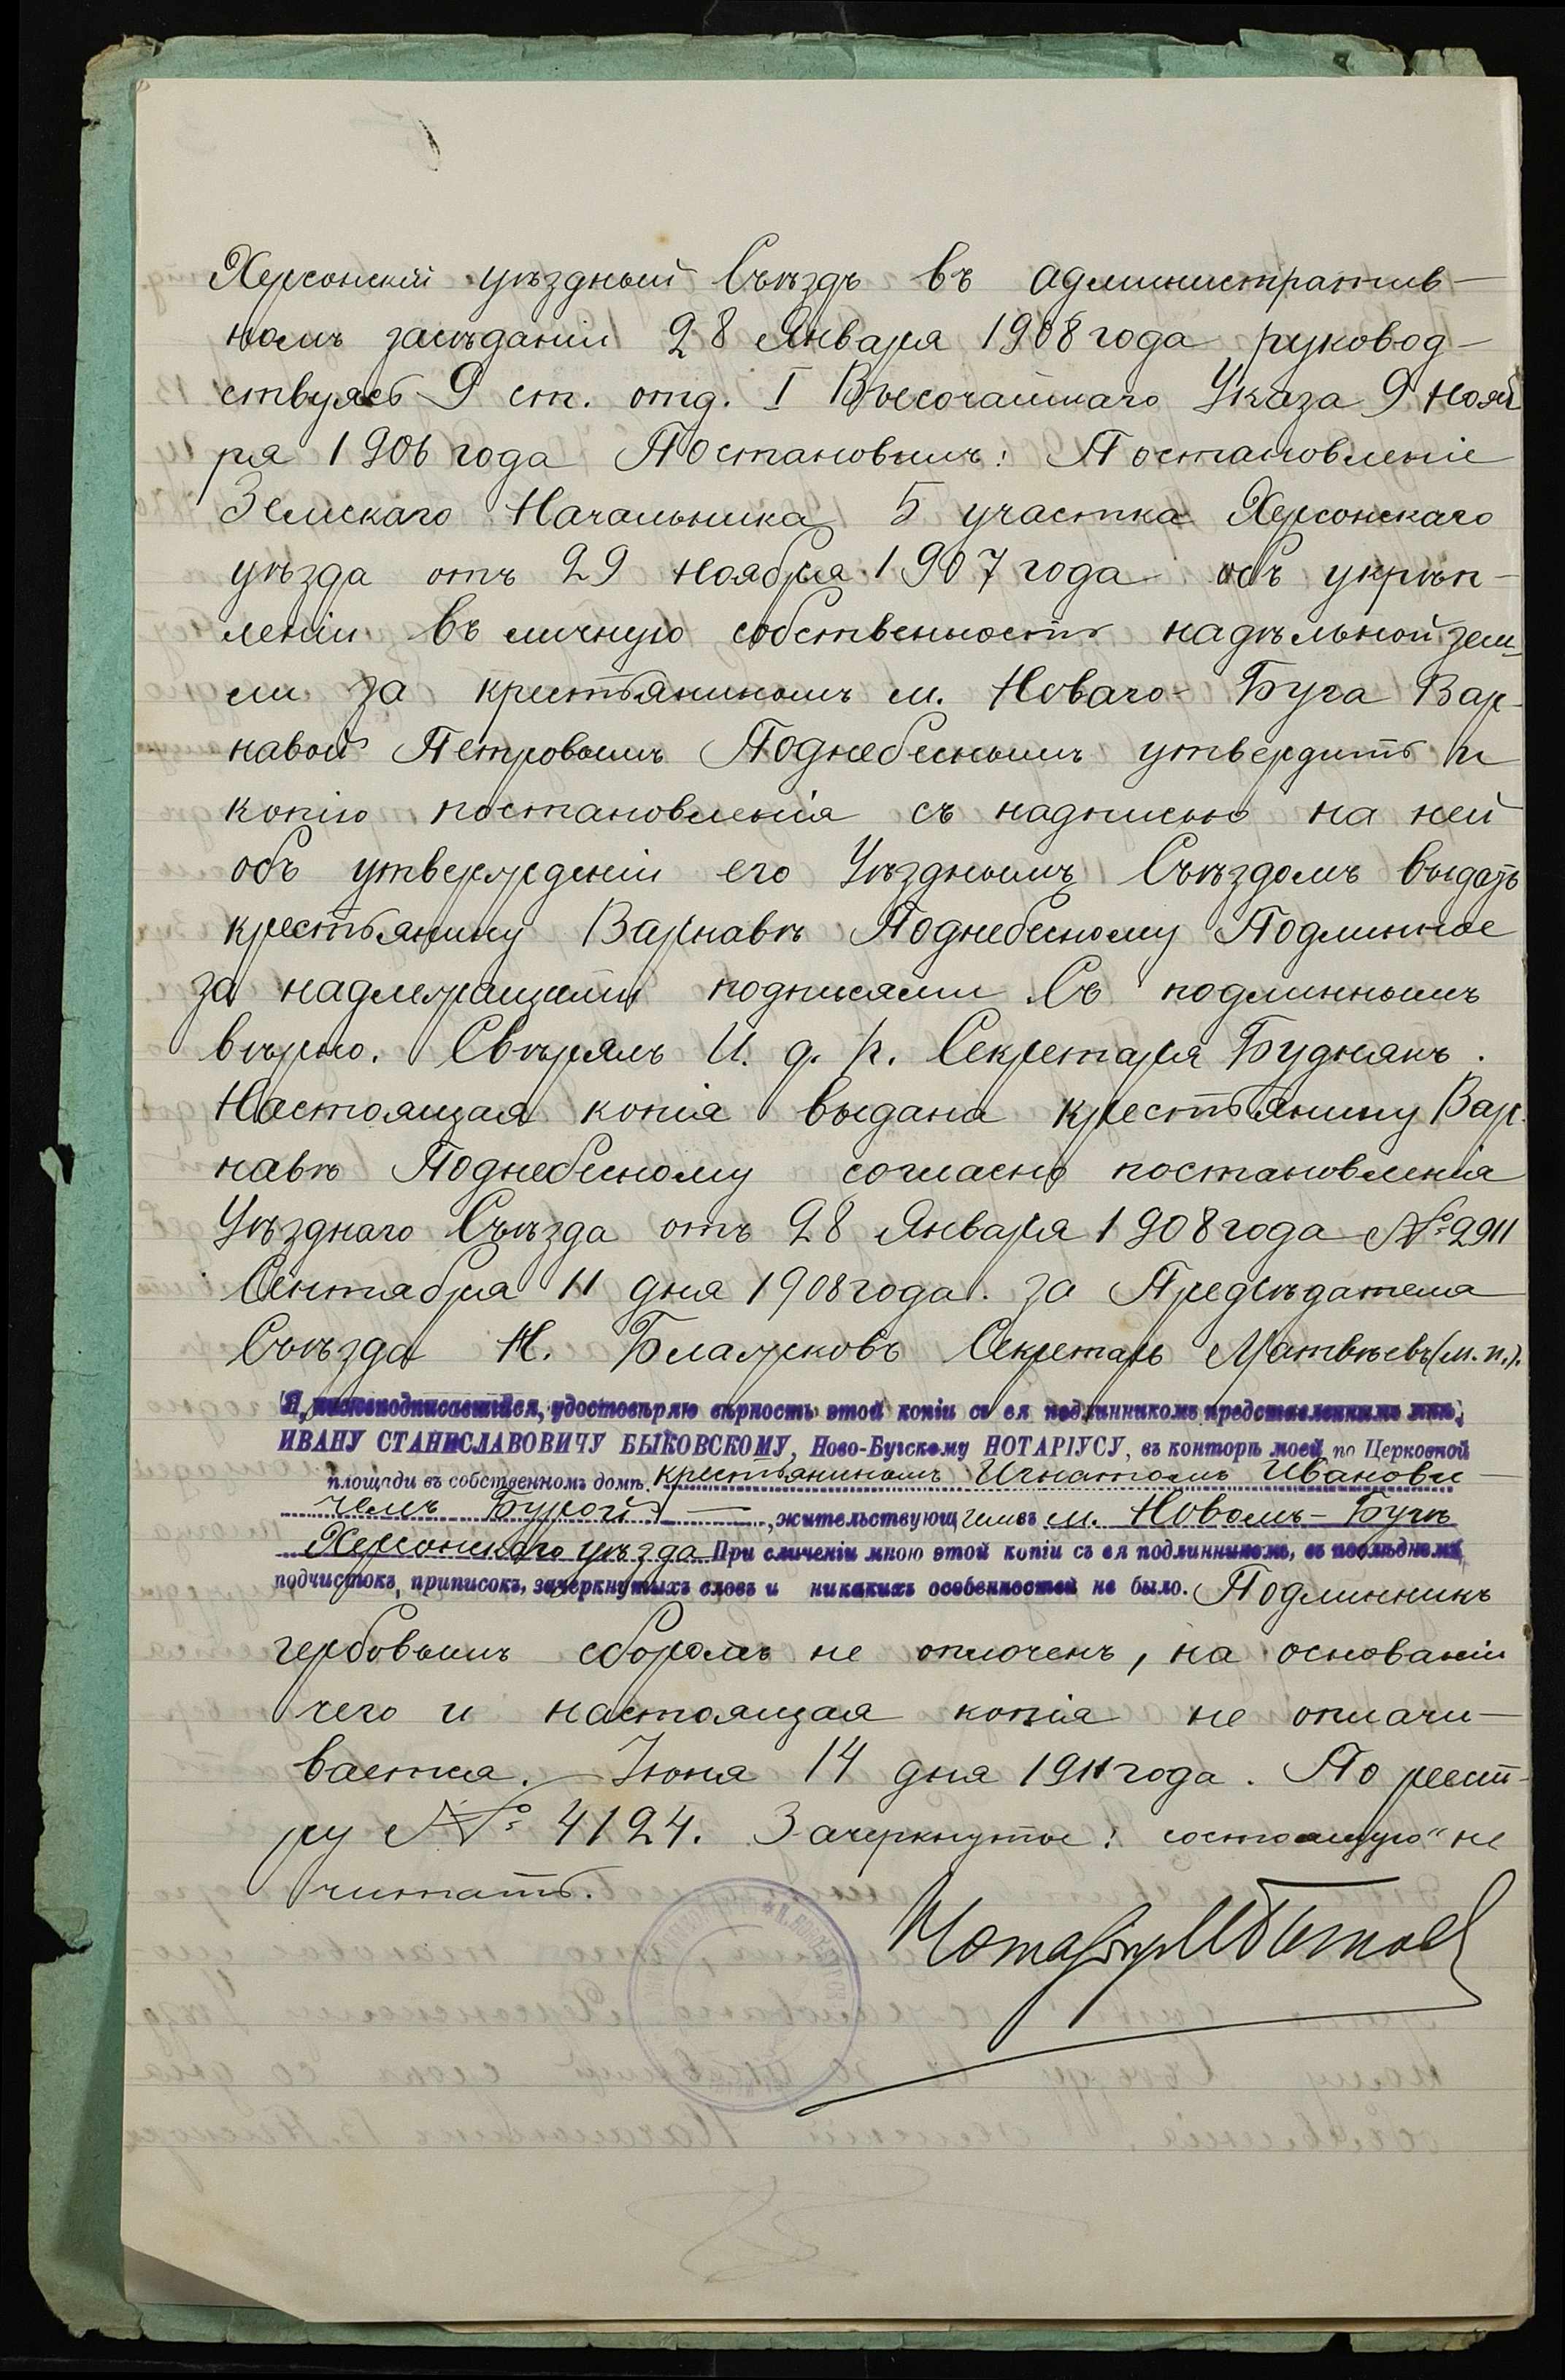 Херсонскій уѣздный Съѣздъ въ административ-
номъ засѣданіи 28 Января 1908 года руковод-
ствуясь 9 ст. отд. I Высочайшаго Указа 9 Нояб
ря 1906 года Постановилъ: Постановленіе
Земскаго Начальника 5 участка Херсонскаго
уѣзда отъ 29 Ноября 1907 года объ укрѣп-
леніи въ личную собственность надѣльной зем-
ли за крестьяниномъ м. Новаго-Буга Вар-
навой Петровымъ Поднебеснымъ утвердить и
копію постановленія съ надписью на ней
объ утвержденіи его Уѣзднымъ Съѣздомъ выдать
крестьянину Варнавѣ Поднебесному Подлинное
за надлежащими подписями. Съ подлиннымъ
вѣрно. Свѣрялъ И. д. п. Секретаря Буднякъ.
Настоящая копія выдана крестьянину Вар-
навѣ Поднебесному согласно постановленія
Уѣзднаго Съѣзда отъ 28 Января 1908 года № 2911
Сентября 11 дня 1908 года. За Предсѣдателя
Съѣзда Н. Блажковъ Секретарь Матвѣевъ (м.п.).
Я, нижеподписавшійся, удостовѣряю вѣрность этой копіи съ ея подлинникомъ представленнымъ мнѣ,
ИВАНУ СТАНИСЛАВОВИЧУ БЫКОВСКОМУ, Ново-Бугскому НОТАРІУСУ, въ конторѣ моей, по Церковной
площади въ собственномъ домѣ, крестьяниномъ Игнатомъ Иванови-
чемъ Бурой —, жительствующимъ въ м. Новомъ-Бугѣ
Херсонскаго уѣзда При сличеніи мною этой копіи съ ея подлинникомъ, въ послѣднемъ
подчистокъ, приписокъ, зачеркнутыхъ словъ и никакихъ особенностей не было. Подлинникъ
гербовымъ сборомъ не оплоченъ, на основаніи
чего и настоящая копія не оплачи-
вается. Іюня 14 дня 1911 года. По реест-
ру № 4124. Зачеркнутое: состоящую" не
читать.
Нотаріусъ